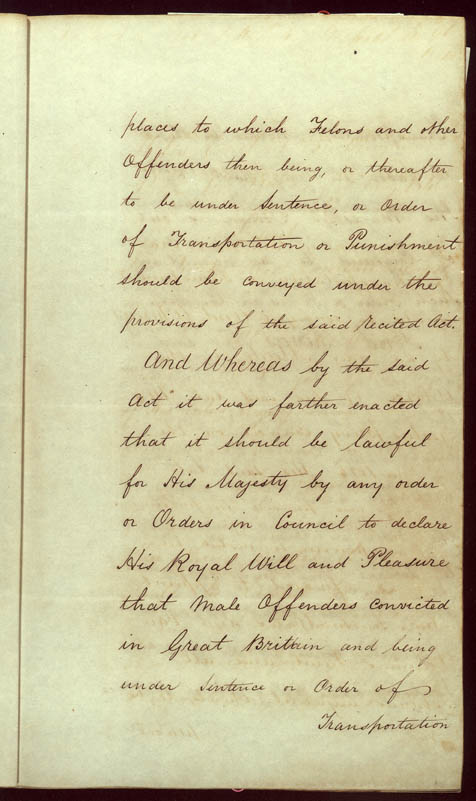 places to which Felons and other
Offenders then being, or thereafter
to be under Sentence, or Order
of Transportation or Punishment
should be conveyed under the
provisions of the said recited Act.
And Whereas by the said
Act it was farther enacted
that it should be lawful
for His Majesty by any order
or Orders in Council to declare
His Royal Will and Pleasure
that Male Offenders convicted
in Great Britain and being
under Sentence or Order of
Transportation